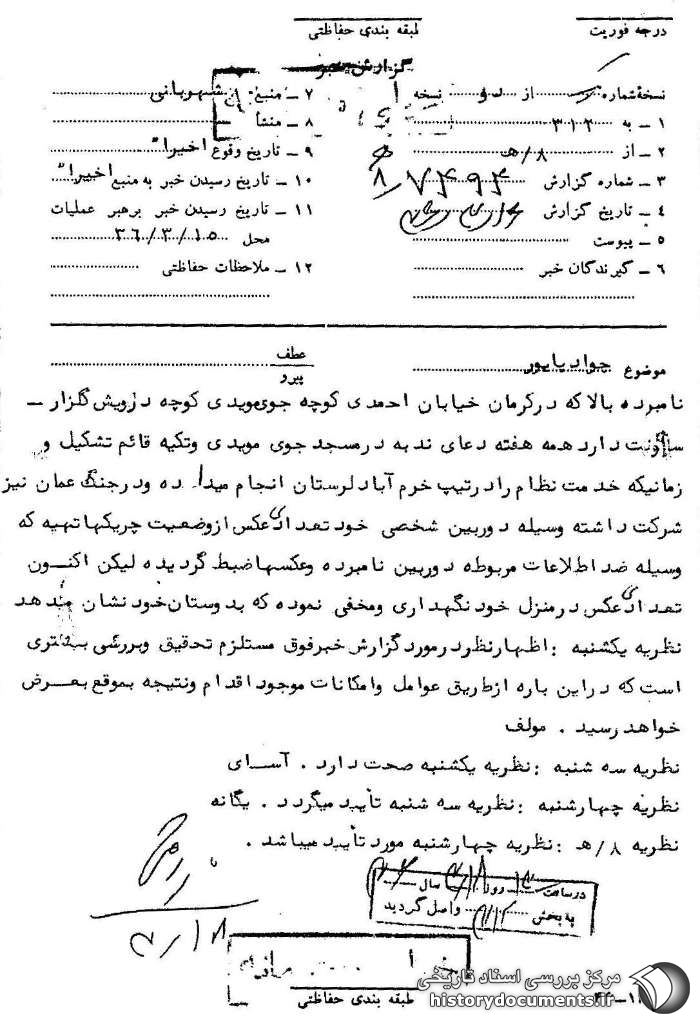 درجه فوریت
طبقه بندی حفاظتی
گزارش خبر
نسخه شماره از دو نسخه
۱ ـ به ۳۱۲
۲ ـ از ۸/هـ
۳ ـ شماره گزارش ۷۴۹۴
۴ ـ تاریخ گزارش
۵ ـ پیوست
۶ ـ گیرندگان خبر
۷ ـ منبع شهربانی
۸ ـ منشأ
۹ ـ تاریخ وقوع اخیرا"
۱۰ ـ تاریخ رسیدن خبر به منبع اخیرا"
۱۱ ـ تاریخ رسیدن خبر برهبر عملیات
محل ۳۶/۳/۱۵
۱۲ ـ ملاحظات حفاظتی
موضوع جواد پاپور
عطف
پیرو
نامبرده بالا که در کرمان خیابان احمدی کوچه جوی مویدی کوچه درویش گلزار ـ
سکونت دارد همه هفته دعای ندبه در مسجد جوی مویدی و تکیه قائم تشکیل و
زمانیکه خدمت نظام را در تیپ خرم آباد لرستان انجام میداده و در جنگ عمان نیز
شرکت داشته وسیله دوربین شخصی خود تعدادی عکس از وضعیت چریکها تهیه که
وسیله ضد اطلاعات مربوطه دوربین نامبرده و عکسها ضبط گردیده لیکن اکنون
تعدادی عکس در منزل خود نگهداری و مخفی نموده که بدوستان خود نشان میدهد
نظریه یکشنبه : اظهار نظر در مورد گزارش خبر فوق مستلزم تحقیق و بررسی بیشتری
است که در این باره از طریق عوامل و امکانات موجود اقدام و نتیجه بموقع بعرض
خواهد رسید . مولف
نظریه سه شنبه : نظریه یکشنبه صحت دارد . آسای
نظریه چهارشنبه : نظریه سه شنبه تأیید میگردد . یگانه
نظریه ۸/هـ : نظریه چهارشنبه مورد تأیید میباشد .
در ساعت روز سال
به بخش ۳۱۲ واصل گردید
۳/۱۸
طبقه بندی حفاظتی
مرکز بررسی اسناد تاریخی
historydocuments.ir